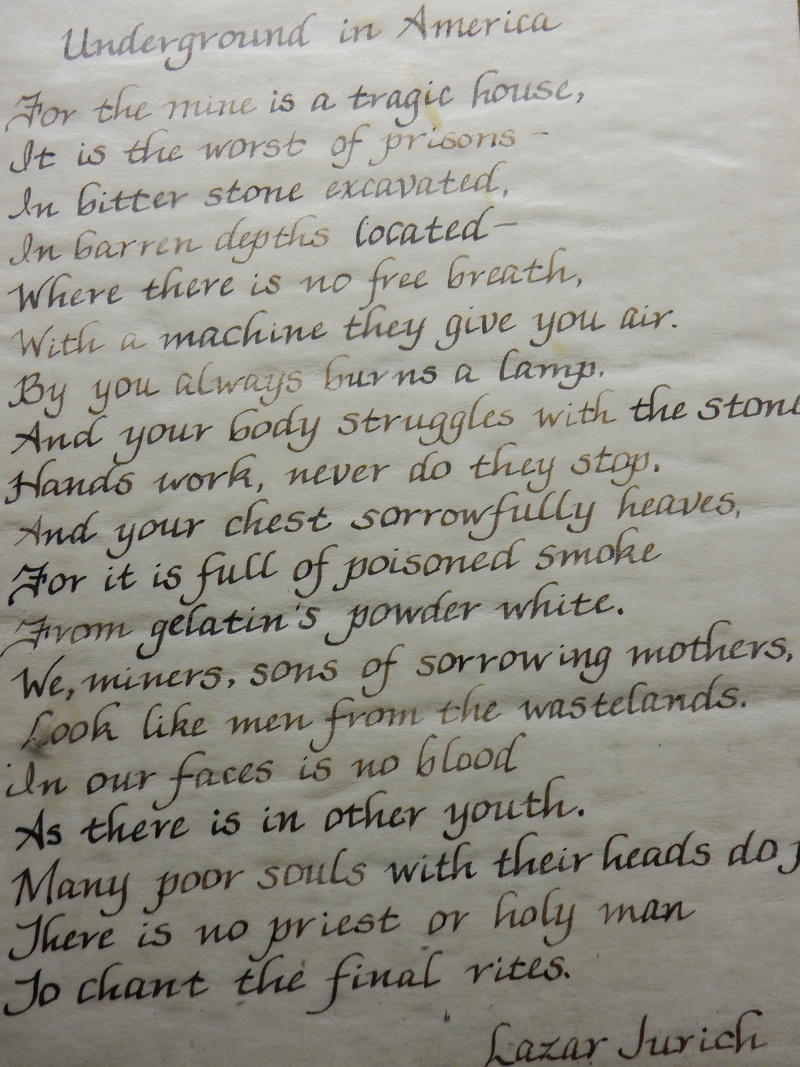 Underground in America
For the mine is a tragic house,
It is the worst of prisons –
In bitter stone excavated,
In barren depths located –
Where there is no free breath,
With a machine they give you air.
By you always burns a lamp,
And your body struggles with the stone
Hands work, never do they stop.
And your chest sorrowfully heaves,
For it is full of poisoned smoke
From gelatin's powder white.
We, miners, sons of sorrowing mothers,
Look like men from the wastelands.
In our faces is no blood
As there is in other youth.
Many poor souls with their heads do
There is no priest or holy man
To chant the final rites.
Lazar Jurich